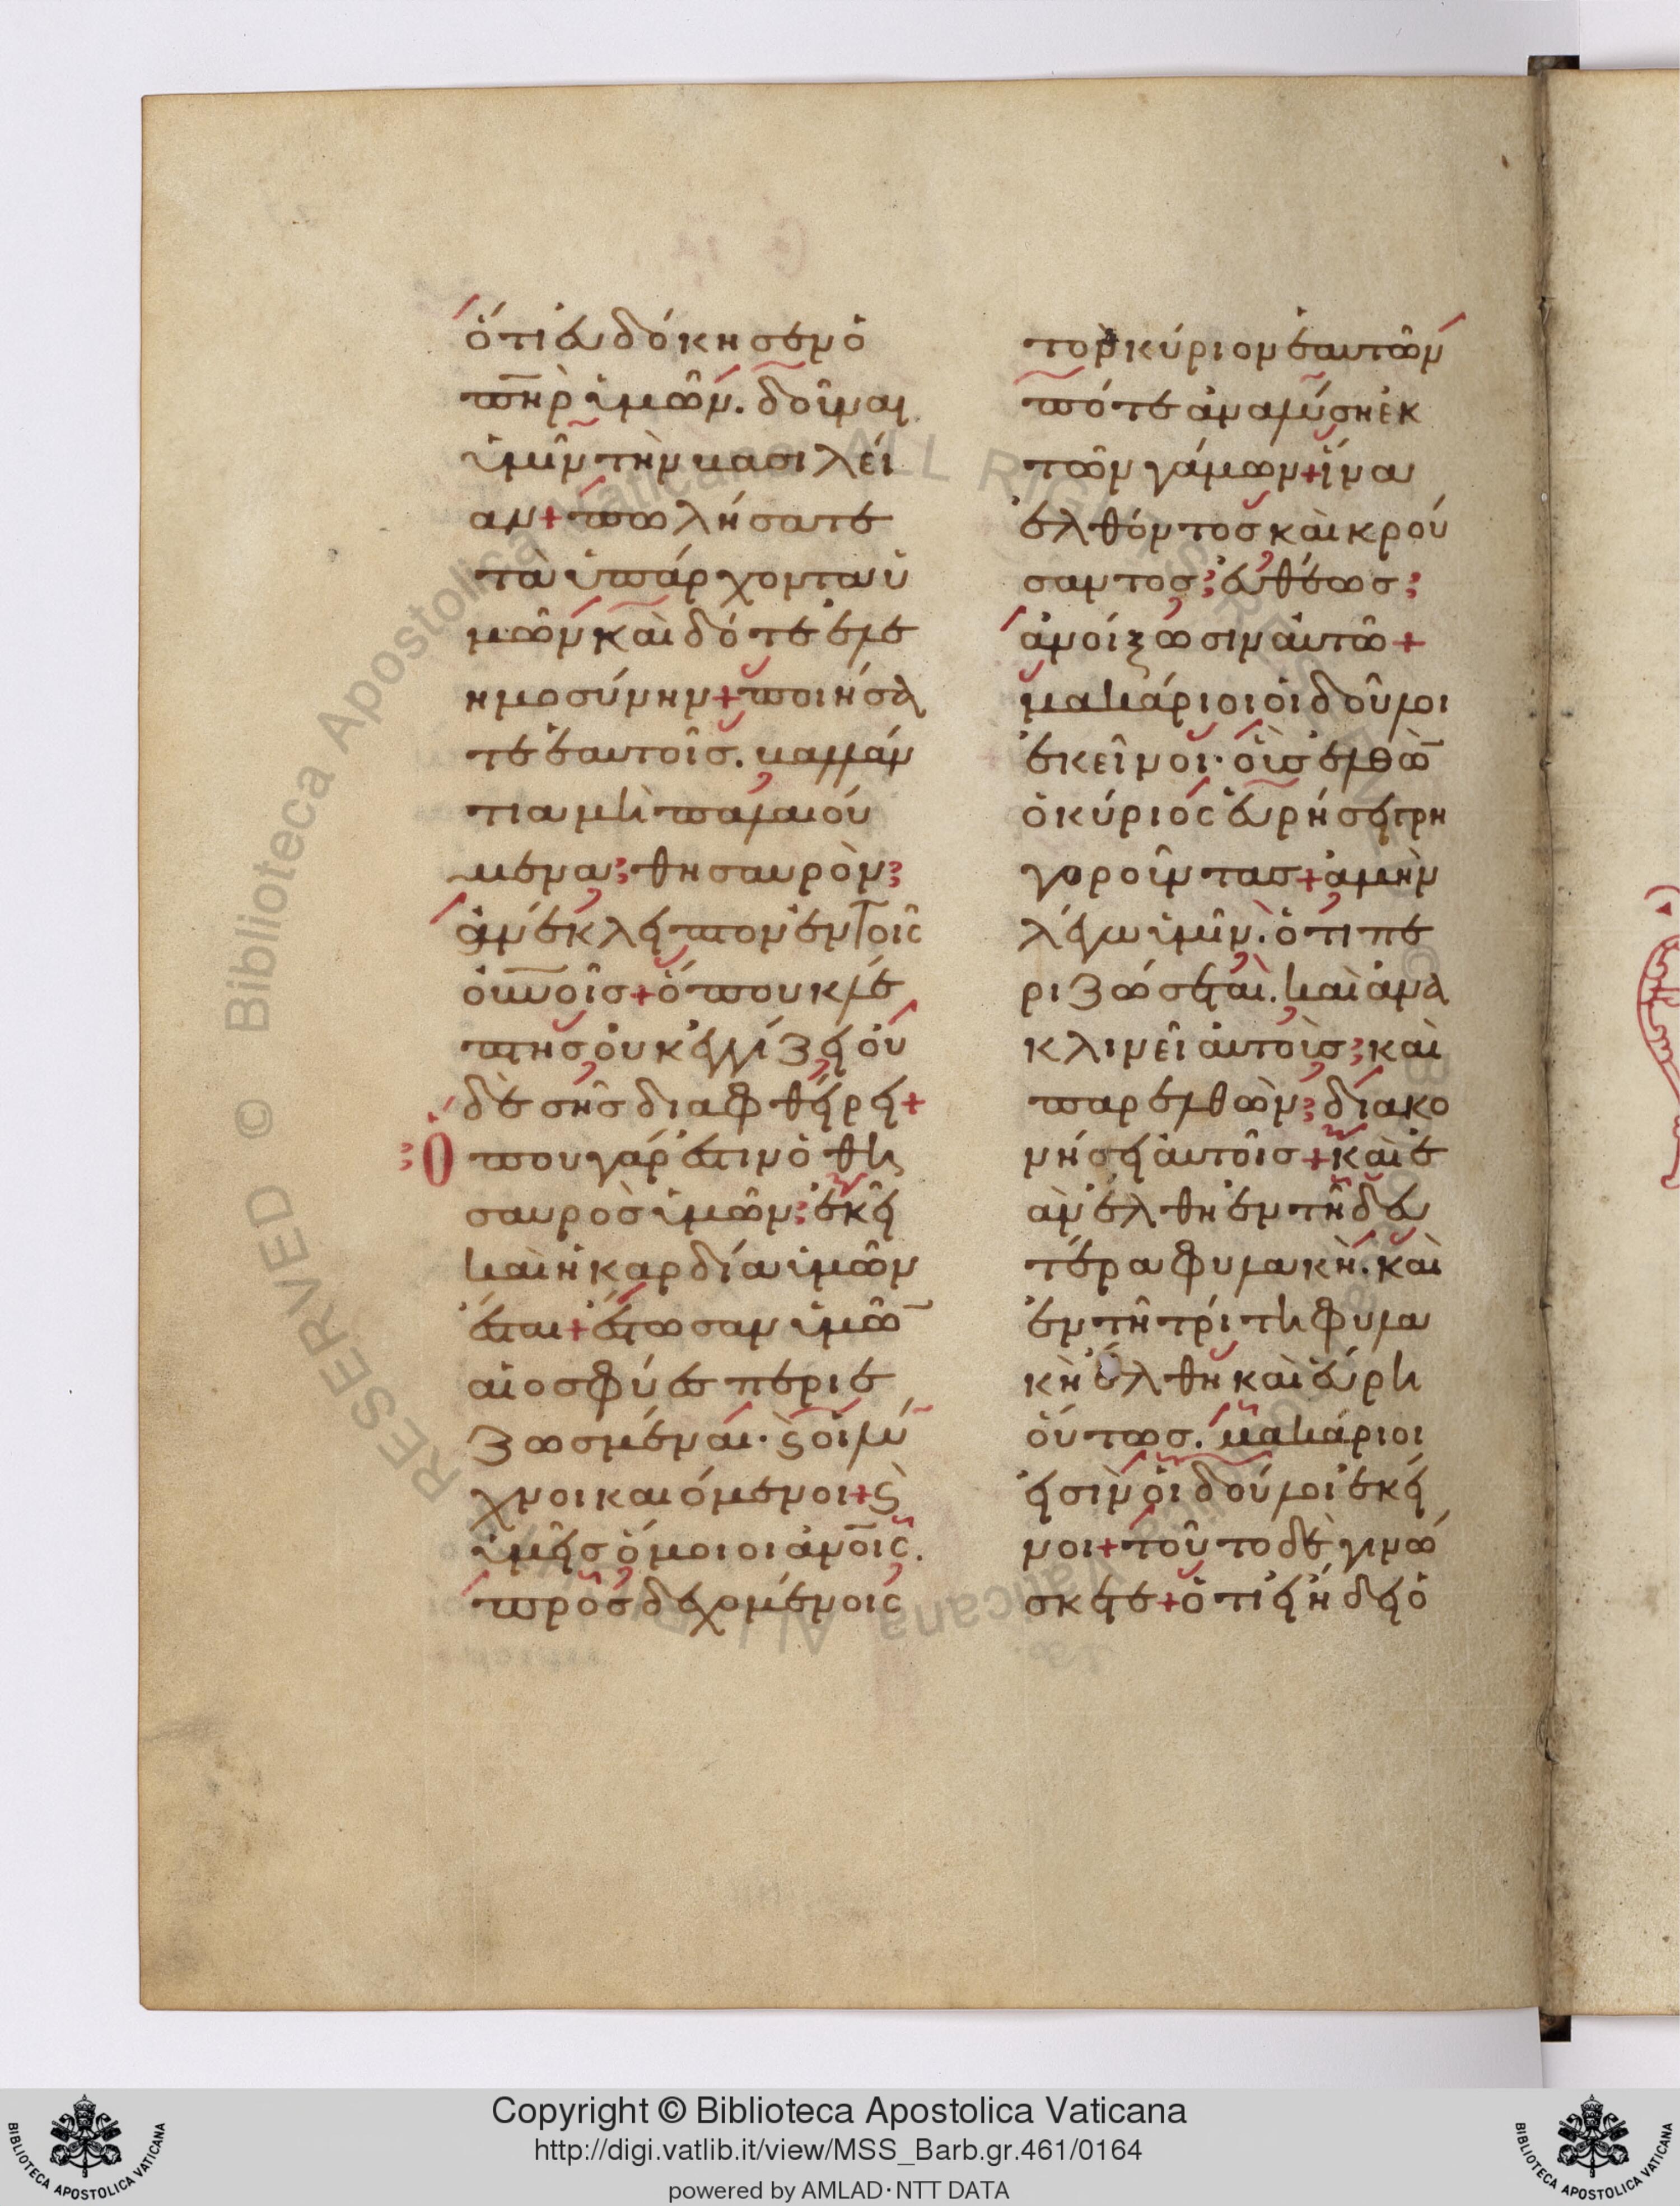 ὅτι εὐδόκησεν ὁ
π̅η̅ρ̅ ὑμῶν. δοῦναι
ὑμῖν τὴν βασιλεί
αν + πωλήσατε
τὰ ὑπάρχοντα ὑ
μῶν καὶ δότε ἐλε
ημοσύνην + ποιήσα
τε ἑαυτοῖς. βαλλάν
τια μὴ παλαιού
μενα; θησαυρὸν;
ἀνέκλειπτον ἐν τοῖς
ο̅υ̅ν̅ο̅ι̅ς + ὅπου κλέ
πτης οὐκ ἐγγίζει οὐ
δὲ σῆς διαφθείρει +
Ὅπου γάρ ἐστιν ὁ θη
σαυρὸς ὑμῶν; ἐκεῖ
καὶ ἡ καρδία ὑμῶν
ἔσται + ἔστωσαν ὑμῶ̅
αἱ οσφύες περιε
ζωσμέναι. ϗ οἱ λύ
χνοι καιόμενοι + ϗ
ὑμεῖς ὅμοιοι α̅ν̅ο̅ι̅ς̅.
προσδεχομένοις
τὸν κύριον ἑαυτῶν
πότε ἀναλύσῃ ἐκ
τῶν γάμων + ἵνα
ἐλθόντος καὶ κρού
σαντος; εὐθέως;
ἀνοίξωσιν αὐτῶ +
μακάριοι οἱ δοῦλοι
ἐκεῖνοι. οὓς ἐλθὼ̅
ὁ κύριός εὑρήσει γρη
γοροῦντας + ἀμὴν
λέγω ὑμῖν. ὅτι πε
ριζώσεται. καὶ ἀνα
κλινεῖ αὐτοὺς; καὶ
παρελθὼν; διακο
νήσει αὐτοῖς + καὶ ἐ
ὰν ἔλθη ἐν τῆ δευ
τέρα φυλακὴ. καὶ
ἐν τῆ τρίτη φυλα
κὴ ἔλθη καὶ εὕρη
οὕτως. μακάριοι
εἰσὶν οἱ δοῦλοι ἐκεῖ
νοι + τοῦτο δὲ γινώ
σκετε + ὅτι εἰ ἤδει ὁ
Copyright © Biblioteca Apostolica Vaticana
http://digi.vatlib.it/view/MSS_Barb.gr.461/0164
powered by AMLAD·NTT DATA